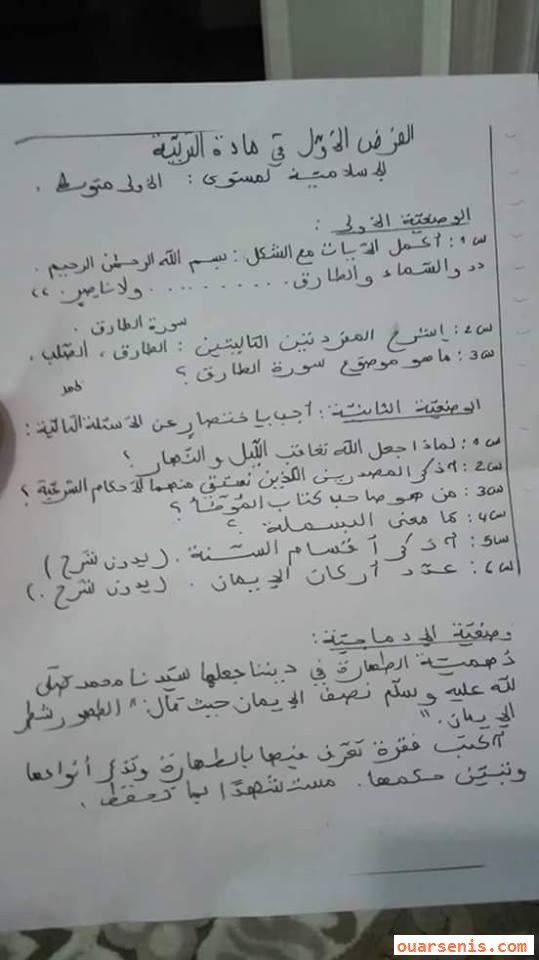 الفرض الأول في مادة التربية
الإسلامية لمستوى : الأولى متوسط .
الوضعية الأولى :
س1 : أكمل الآيات مع الشكل : بسم الله الرحمن الرحيم .
" والسماء والطارق .......... ولا ناصر . "
سورة الطارق .
س2 : اشرح المفردتين التاليتين : الطارق ، الصلب .
س3 : ما هو موضوع سورة الطارق ؟
الوضعية الثانية : أجب باختصار عن الأسئلة التالية :
س1 : لماذا جعل الله تعاقب الليل والنهار ؟
س2 : اذكر المصدرين اللذين نستقي منهما الأحكام الشرعية ؟
س3 : من هو صاحب كتاب الموطأ ؟
س4 : ما معنى البسملة ؟
س5 : اذكر أقسام السنة . (بدون شرح)
س6 : عدد أركان الإيمان . (بدون شرح .)
وضعية الإدماجية :
لأهمية الطهارة في ديننا جعلها سيدنا محمد صلى
الله عليه وسلم نصف الإيمان حيث قال : " الطهور شطر
الإيمان . "
اكتب فقرة تعرف فيها بالطهارة وتذكر أنواعها
وتبين حكمها . مستشهدا بما تحفظ .
ouarsenis.com